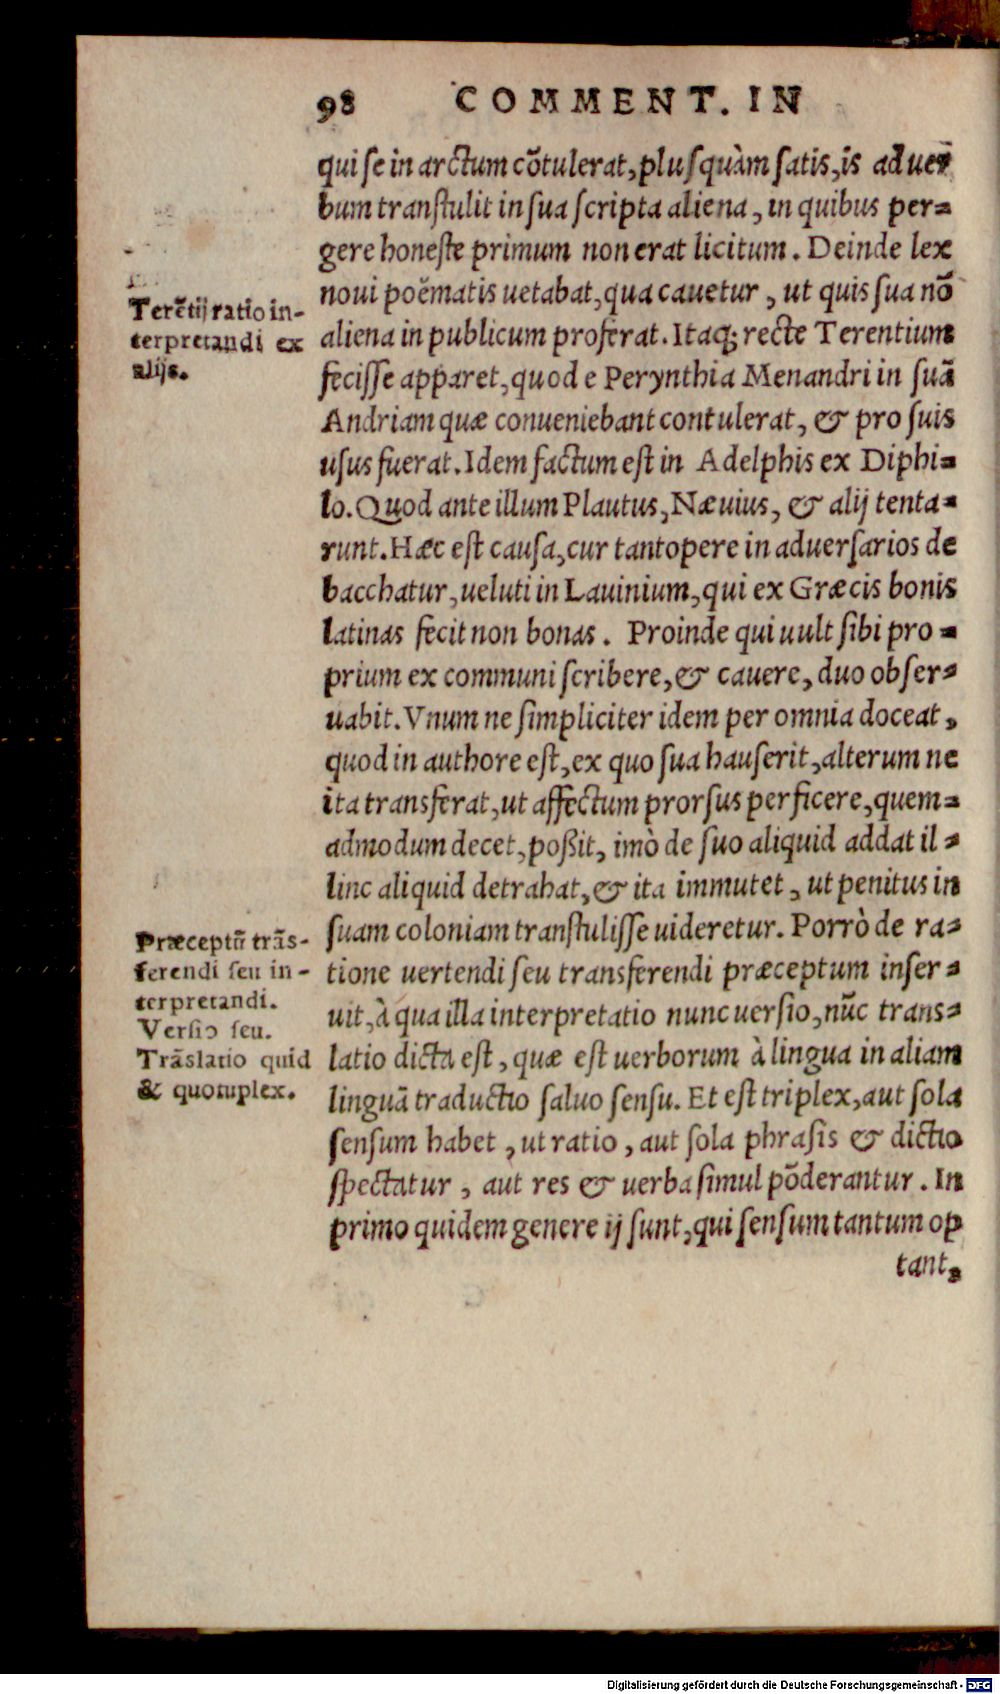 98 COMMENT. IN
qui se in arctum cõtulerat, plusquàm satis, is ad uer
bum transtulit in sua scripta aliena, in quibus per-
gere honeste primum non erat licitum. Deinde lex
noui poëmatis uetabat, qua cauetur, ut quis sua nõ
aliena in publicum proferat. Itaq; recte Terentium
fecisse apparet, quod e Perynthia Menandri in suã
Andriam quæ conueniebant contulerat, & pro suis
usus fuerat. Idem factum est in Adelphis ex Diphi-
lo. Quod ante illum Plautus, Næuius, & alij tenta-
runt. Hæc est causa, cur tantopere in aduersarios de
bacchatur, ueluti in Lauinium, qui ex Græcis bonis
latinas fecit non bonas. Proinde qui uult sibi pro-
prium ex communi scribere, & cauere, duo obser-
uabit. Vnum ne simpliciter idem per omnia doceat,
quod in authore est, ex quo sua hauserit, alterum ne
ita transferat, ut affectum prorsus perficere, quem-
admodum decet, poßit, imò de suo aliquid addat il-
linc aliquid detrahat, & ita immutet, ut penitus in
suam coloniam transtulisse uideretur. Porrò de ra-
tione uertendi seu transferendi præceptum inser-
uit, à qua illa interpretatio nunc uersio, nũc trans-
latio dicta est, quæ est uerborum à lingua in aliam
linguã traductio saluo sensu. Et est triplex, aut sola
sensum habet, ut ratio, aut sola phrasis & dictio
spectatur, aut res & uerba simul põderantur. In
primo quidem genere ij sunt, qui sensum tantum op
tant,
Terẽtij ratio in-
terpretandi ex
alijs.
Præceptũ trãs-
ferendi seu in-
terpretandi.
Versio seu.
Trãslatio quid
& quotuplex.
Digitalisierung gefördert durch die Deutsche Forschungsgemeinschaft - DFG